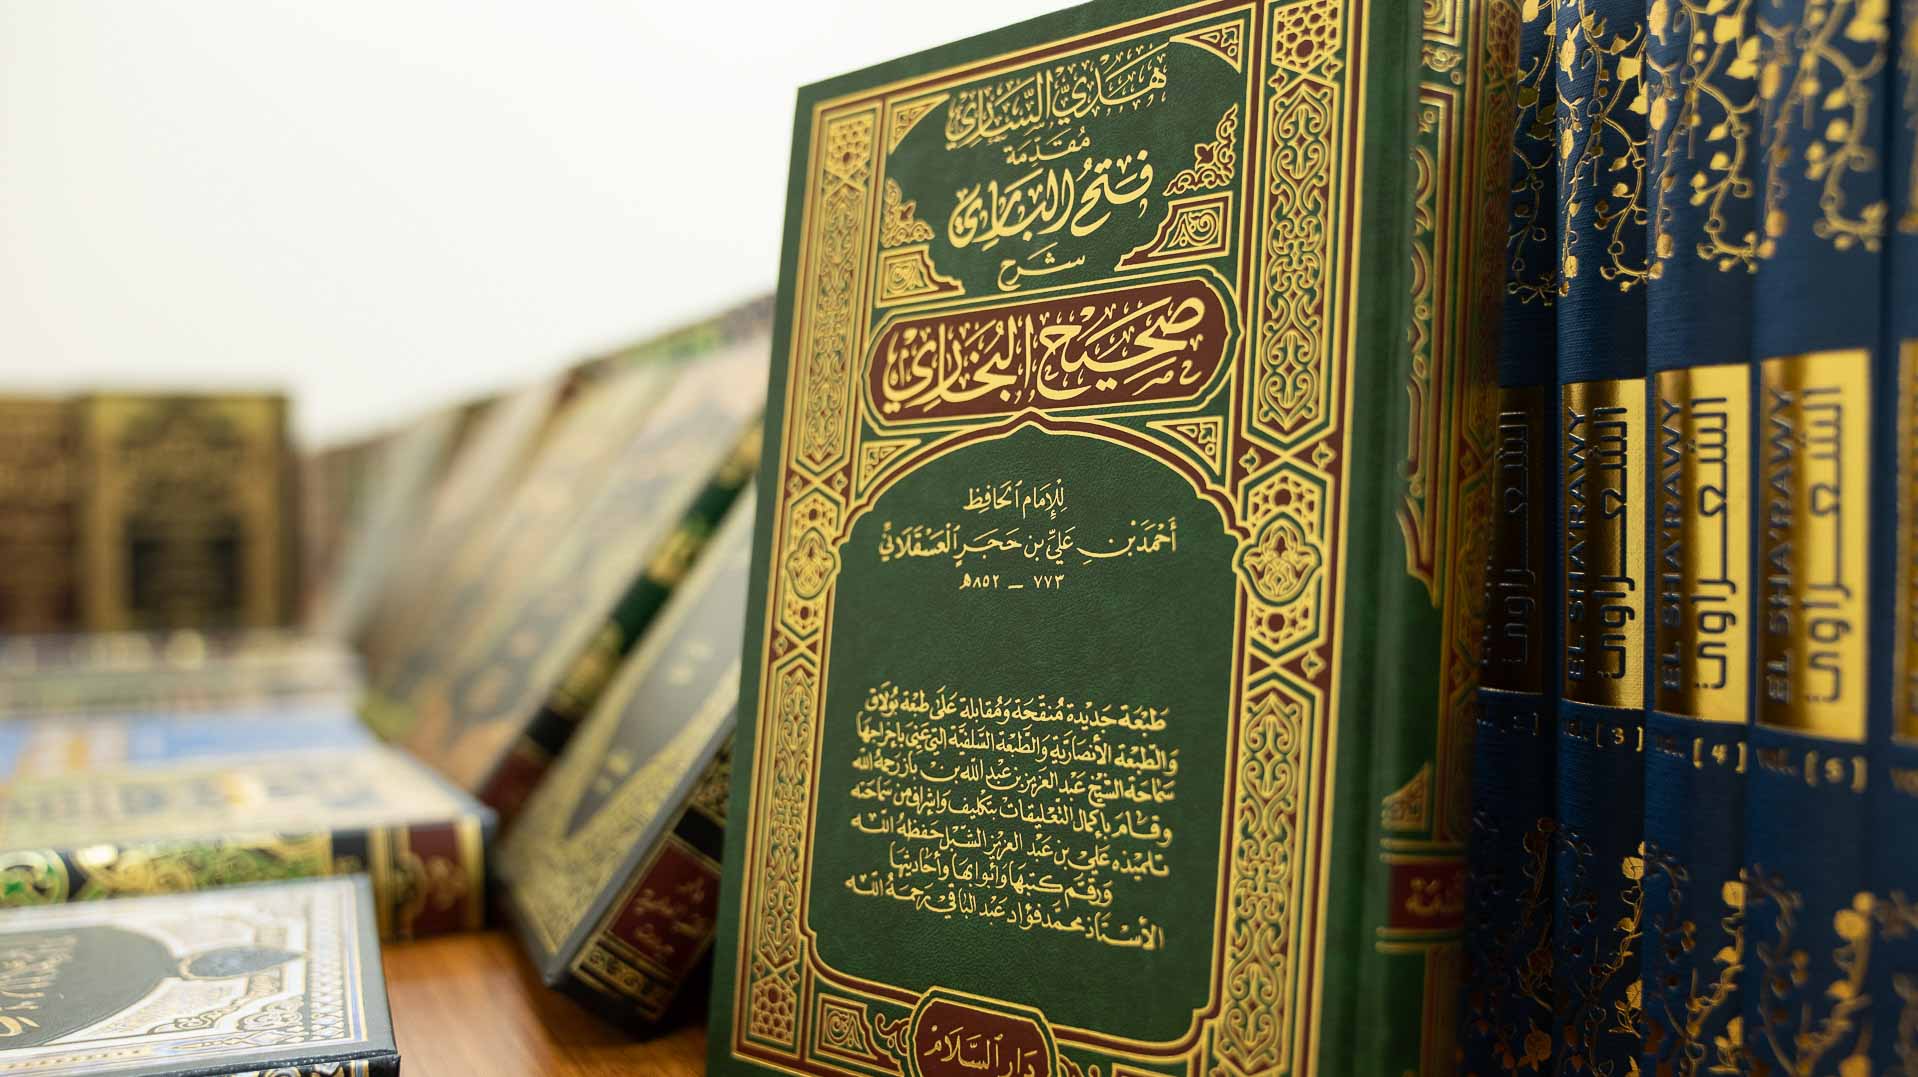 هَدْيُ السَّارِي
مُقَدِّمَة
فَتْحُ البَارِي
شرح
صَحِيح البُخَارِي
لِلْإِمَام ٱلحَافِظ
أَحْمَد بْن عَلِيّ بْن حَجَر ٱلْعَسْقَلَانِيّ
٧٧٣ – ٨٥٢هـ
طَبْعَة جَدِيدة مُنَقَّحَة وَمُقَابلة عَلَى طَبْعَة بُولَاق
وَالطَّبْعَة الأنصَاريَّة وَالطَّبْعَة السَّلفيَّة التي عُني بإخراجها
سَمَاحَة الشَّيْخ عَبْد العَزيز بن عَبْد اللّه بن بَاز رَحِمَهُ اللّه
وقَامَ بإكمَال التَّعْليقَات بتَكْليف وَإشرَاف مِن سَمَاحته
تلميذه عَلي بن عَبْد العَزيز الشَّبْل حَفِظَهُ اللّه
وَرَقَّم كتبهَا وَأبوابها وأحاديثها
الأستَاذ محمّد فُؤاد عَبْد البَاقي رَحِمَهُ اللّه
دَار ٱلسَّلَام
الشعراوي
EL SHA'RAWY
الشعراوي
[ 3 ]
EL SHA'RAWY
الشعراوي
[ 4 ]
EL SHA'RAWY
الشعراوي
VOL. [ 5 ]